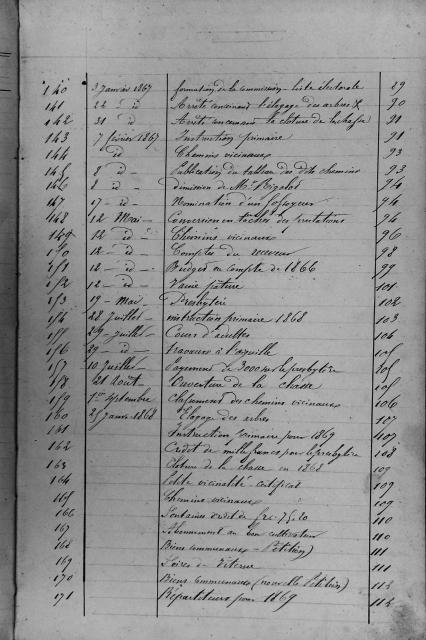 140 3 Janvier 1867 formation de la commission - liste électorale 89
141 22 id Arrêté concernant l'élagage des arbres & 90
142 31 id Arrêté concernant la cloture de la chasse 91
143 7 février 1867 Instruction primaire 91
144 id Chemins vicinaux 93
145 8 id - Publication du tableau des dits chemins 93
146 8 id - démission de Mr Rigolot 94
147 17 - id - Nomination d'un fossoyeur 94
148 12 Mai - Conversion en tâches des prestations 94
149 12 - id - Chemins vicinaux 96
150 12 - id - Comptes du receveur 98
151 12 - id - Budget en compte de 1866 99
152 12 - id - Vaine pâture 101
153 19 - Mai - Presbytère 102
154 28 Juillet - instruction primaire 1868 103
155 29 - juillet - Cours d'adultes 104
156 29 - id - travaux à l'aiguille 105
157 10 Juillet - payement de 3000 sur le presbytère 105
158 21 Août - Ouverture de la chasse 105
159 1er septembre des chemins vicinaux 106
160 25 Janvr 1868 Elagage des arbres 107
161 Instruction primaire pour 1869 107
162 Crédit de mille francs pour le presbytère 108
163 Cloture de la chasse en 1868 109
164 petite vicinalité certificat 109
165 Chemins vicinaux 109
166 Fontaines crédit de frs 75.20 110
167 Abonnement au bon cultivateur 110
168 Biens communaux - Pétition) 111
169 Foires de 111
170 Biens communaux (nouvelle Pétition) 112
171 Répartiteurs pour 1869 112